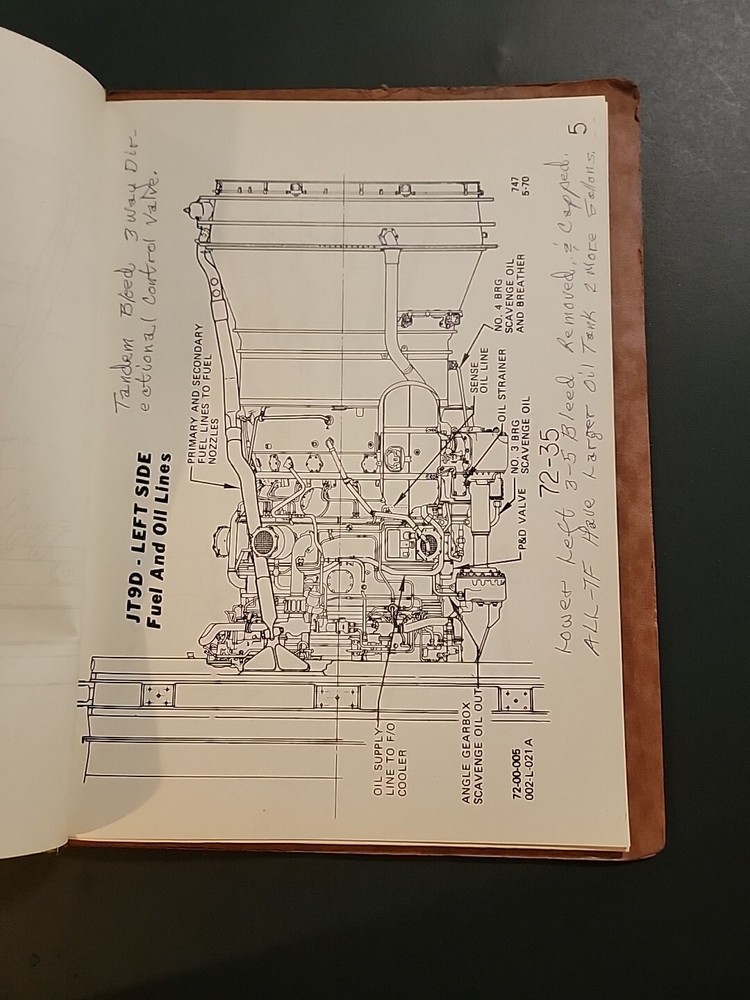 Tandem Bleed 3 Way Dir-
ectional Control Valve.
JT9D - LEFT SIDE
Fuel And Oil Lines
PRIMARY AND SECONDARY
FUEL LINES TO FUEL
NOZZLES
OIL SUPPLY
LINE TO F/O
COOLER
ANGLE GEARBOX
SCAVENGE OIL OUT
P&D VALVE
NO. 3 BRG
SCAVENGE OIL
OIL STRAINER
SENSE
OIL LINE
NO. 4 BRG
SCAVENGE OIL
AND BREATHER
72-00-005
002-L-021A
747
5-70
72-35
Lower Left 3-5 Bleed Removed, & Capped.
ALL -7F Have Larger Oil Tank 2 More Gallons.
5